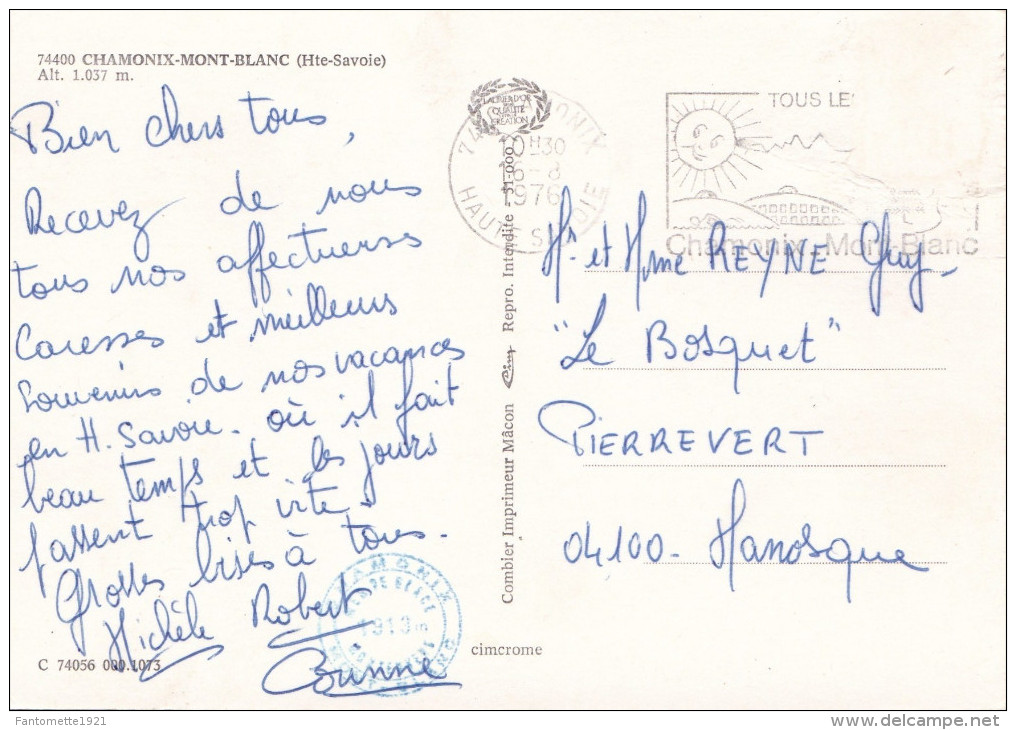 74400 CHAMONIX-MONT-BLANC (Hte-Savoie)
Alt. 1.037 m.
Bien chers tous,
Recevez de nous
tous nos affectueuses
Caresses et meilleurs
Souvenirs de nos vacances
en H. Savoie. où il fait
beau temps et les jours
passent trop vite.
Grosses bises à tous.
Michèle Robert
Corinne
C 74056 000.1073
cimcrome
CHAMONIX
MER DE GLACE
1913 m
MONTENVERS
MONT BLANC
Combier Imprimeur Mâcon Cim Repro. Interdite 51-000
LAURIER D'OR
DE LA
QUALITÉ
CRÉATION
74 CHAMONIX
10H30
16-8
1976
HAUTE SAVOIE
TOUS LE
Chamonix-Mont-Blanc
Mr et Mme REYNE Guy
"Le Bosquet"
PIERREVERT
04100- Manosque
Fantomette1921
delcampe.net